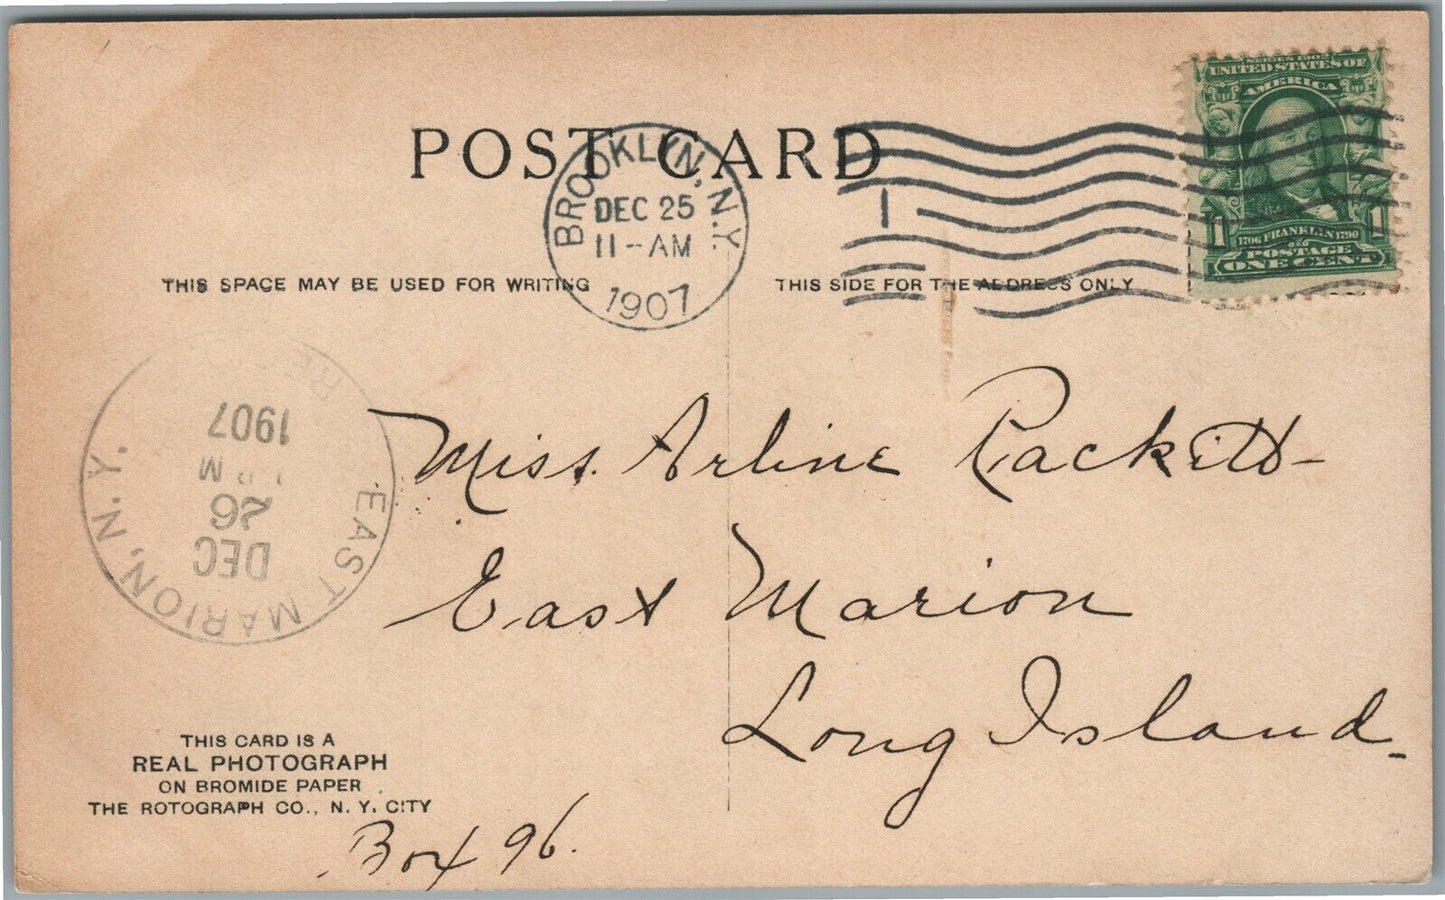 POST CARD
BROOKLYN, N.Y.
DEC 25
11-AM
1907
1
SERIES 1902
UNITED STATES OF
AMERICA
1 1
1706 FRANKLIN 1790
POSTAGE
ONE CENT
THIS SPACE MAY BE USED FOR WRITING
THIS SIDE FOR THE ADDRESS ONLY
EAST MARION, N.Y.
DEC
26
M
1907
Miss. Arline Rackett
East Marion
Long Island.
THIS CARD IS A
REAL PHOTOGRAPH
ON BROMIDE PAPER
THE ROTOGRAPH CO., N. Y. CITY
Box 96.